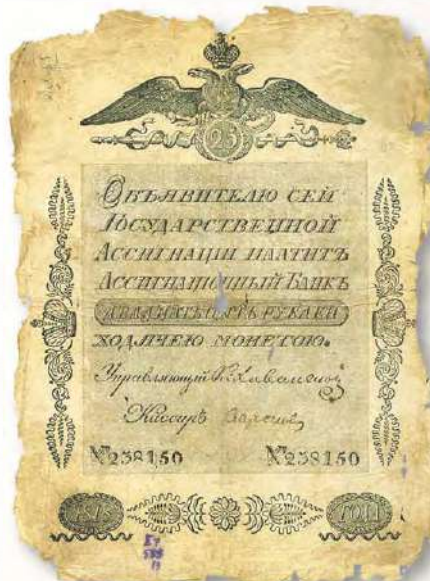 25
Объявителю сей
Государственной
Ассигнации платитъ
Ассигнационный Банкъ
двадцать пять рублей
ходячею монетою.
Управляющий
Кассиръ
№238150 №238150
1818 года